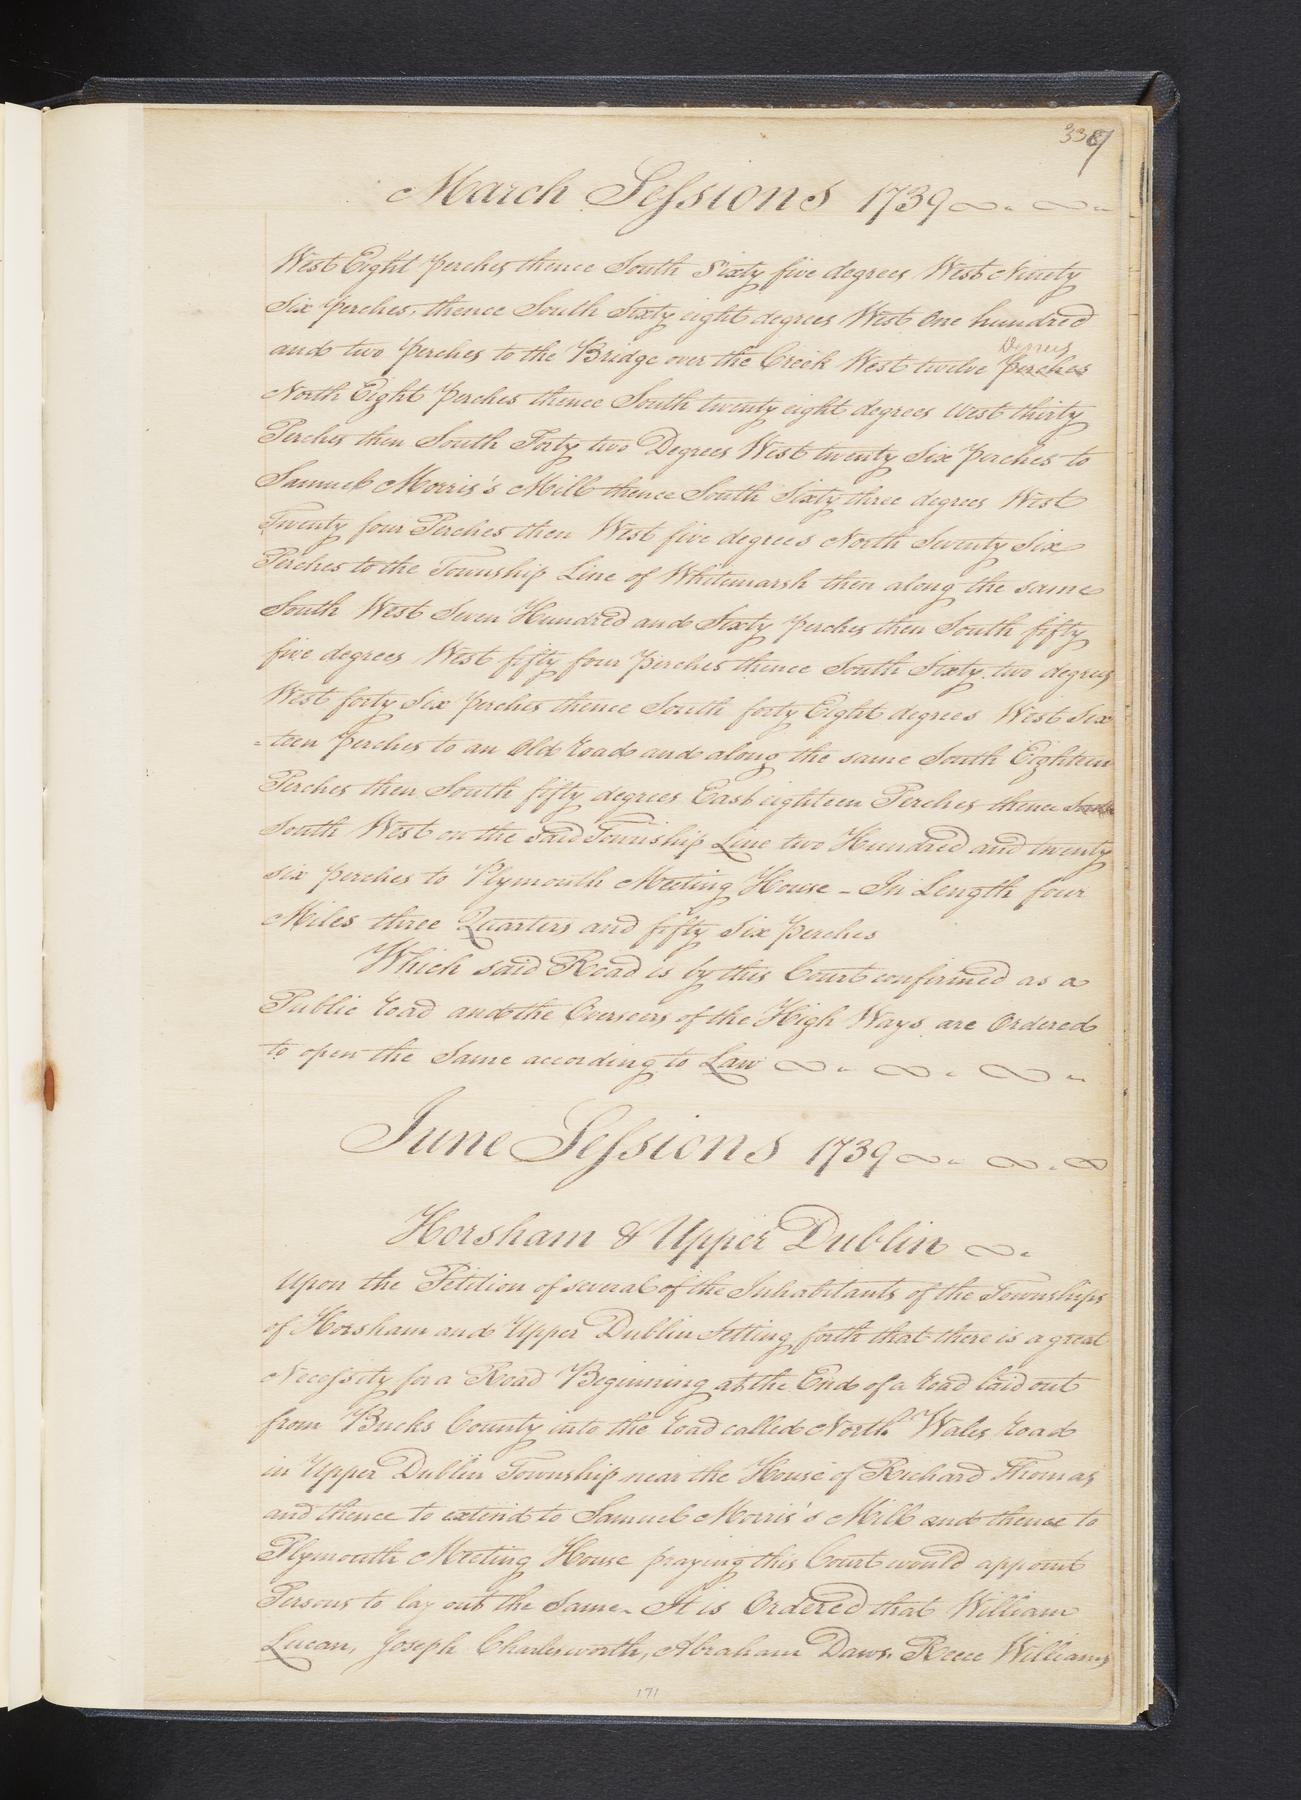 337
March Sessions 1739
West Eight perches thence South Sixty five degrees West Ninety
Six perches, thence South Sixty eight degrees West One hundred
and two perches to the Bridge over the Creek West twelve perches
Degrees
North Eight perches thence South twenty eight degrees West thirty
Perches then South Forty two Degrees West twenty Six perches to
Samuel Morris's Mill thence South Sixty three degrees West
Twenty four Perches then West five degrees North Seventy Six
Perches to the Township Line of Whitemarsh then along the same
South West Seven Hundred and Sixty perches then South fifty
five degrees West fifty four perches thence South Sixty two degrees
West forty Six perches thence South forty Eight degrees West Six
-teen perches to an Old road and along the same South Eighteen
Perches then South fifty degrees East eighteen Perches thence South
South West on the said Township Line two Hundred and twenty
six perches to Plymouth Meeting House - In Length four
Miles three Quarters and fifty Six perches
Which said Road is by this Court confirmed as a
Public road and the Overseers of the High Ways are Ordered
to open the Same according to Law
June Sessions 1739
Horsham & Upper Dublin
Upon the Petition of several of the Inhabitants of the Townships
of Horsham and Upper Dublin Setting forth that there is a great
Necessity for a Road Beginning at the End of a road laid out
from Bucks County into the road called North Wales road
in Upper Dublin Township near the House of Richard Thomas
and thence to extend to Samuel Morris's Mill and thence to
Plymouth Meeting House praying this Court would appoint
Persons to lay out the Same - It is Ordered that William
Lucan, Joseph Charlesworth, Abraham Daws, Reece Williams
171